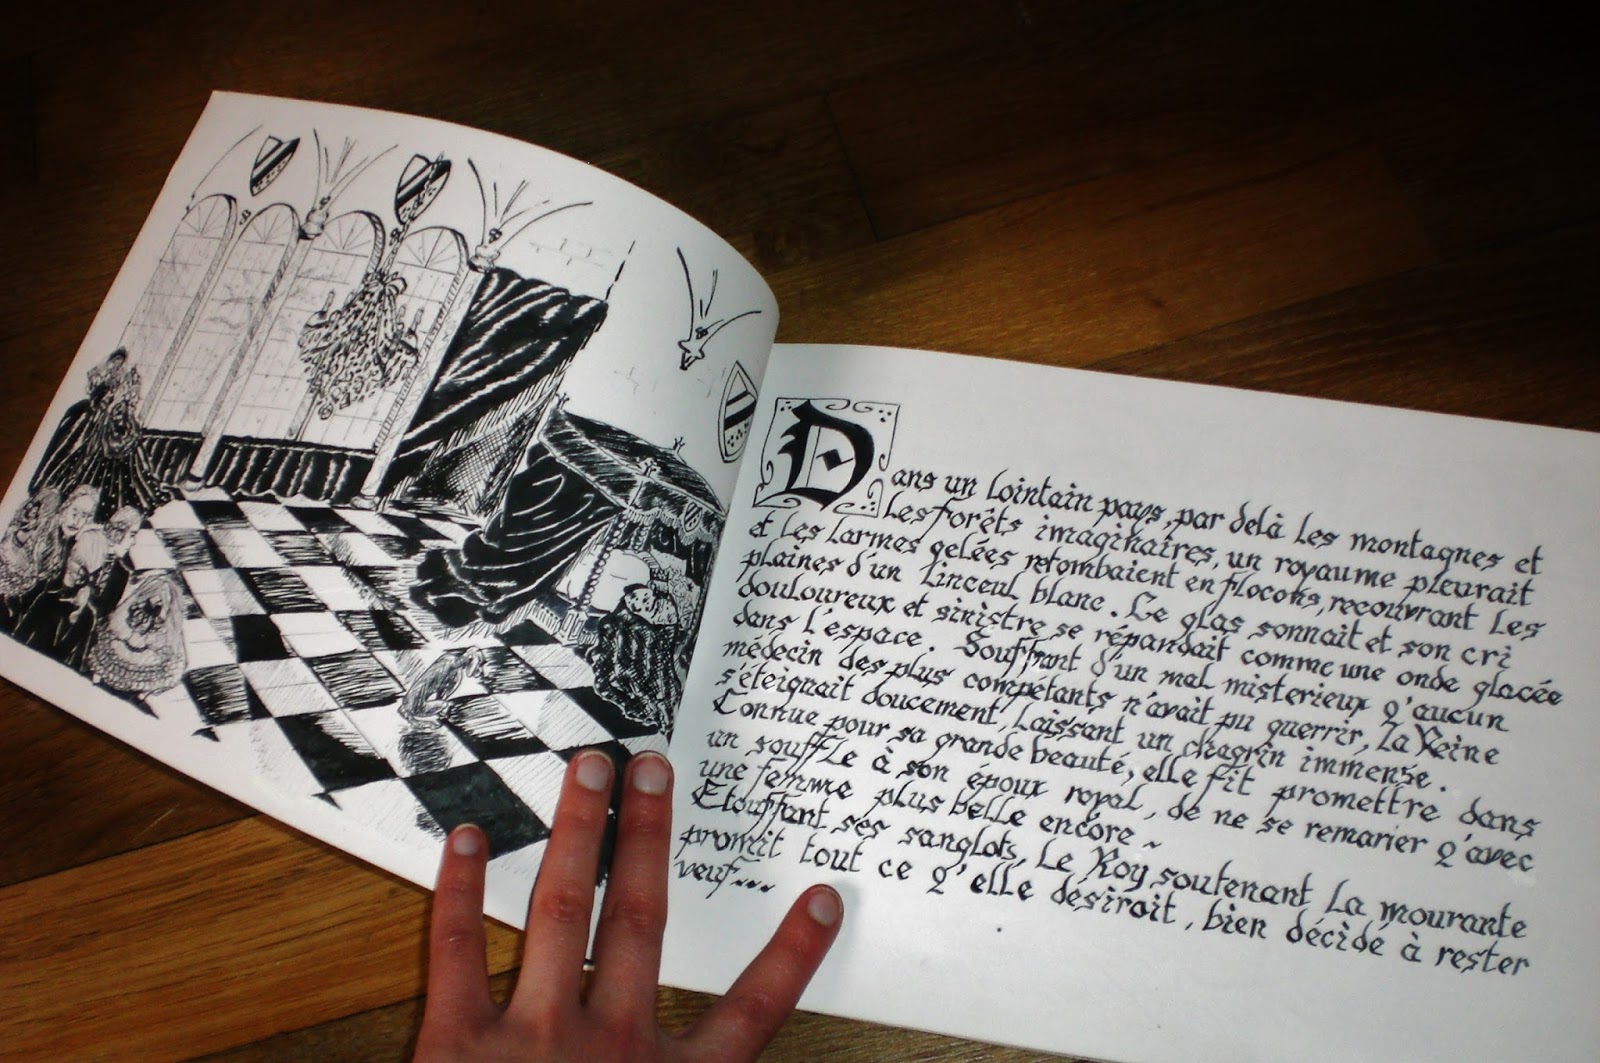 Dans un lointain pays, par delà les montagnes et
les forêts imaginaires, un royaume pleurait
et les larmes gelées retombaient en flocons, recouvrant les
plaines d'un linceul blanc. Le glas sonnait et son cri
douloureux et sinistre se répandait comme une onde glacée
dans l'espace. Souffrant d'un mal misterieux q'aucun
médecin des plus compétants n'avait pu guerrir, la Reine
s'éteignait doucement, laissant un chagrin immense.
Connue pour sa grande beauté, elle fit promettre dans
un souffle à son époux royal, de ne se remarier q'avec
une femme plus belle encore ~
Etouffant ses sanglots, le Roy soutenant la mourante
promit tout ce q'elle désiroit, bien décidé à rester
veuf...